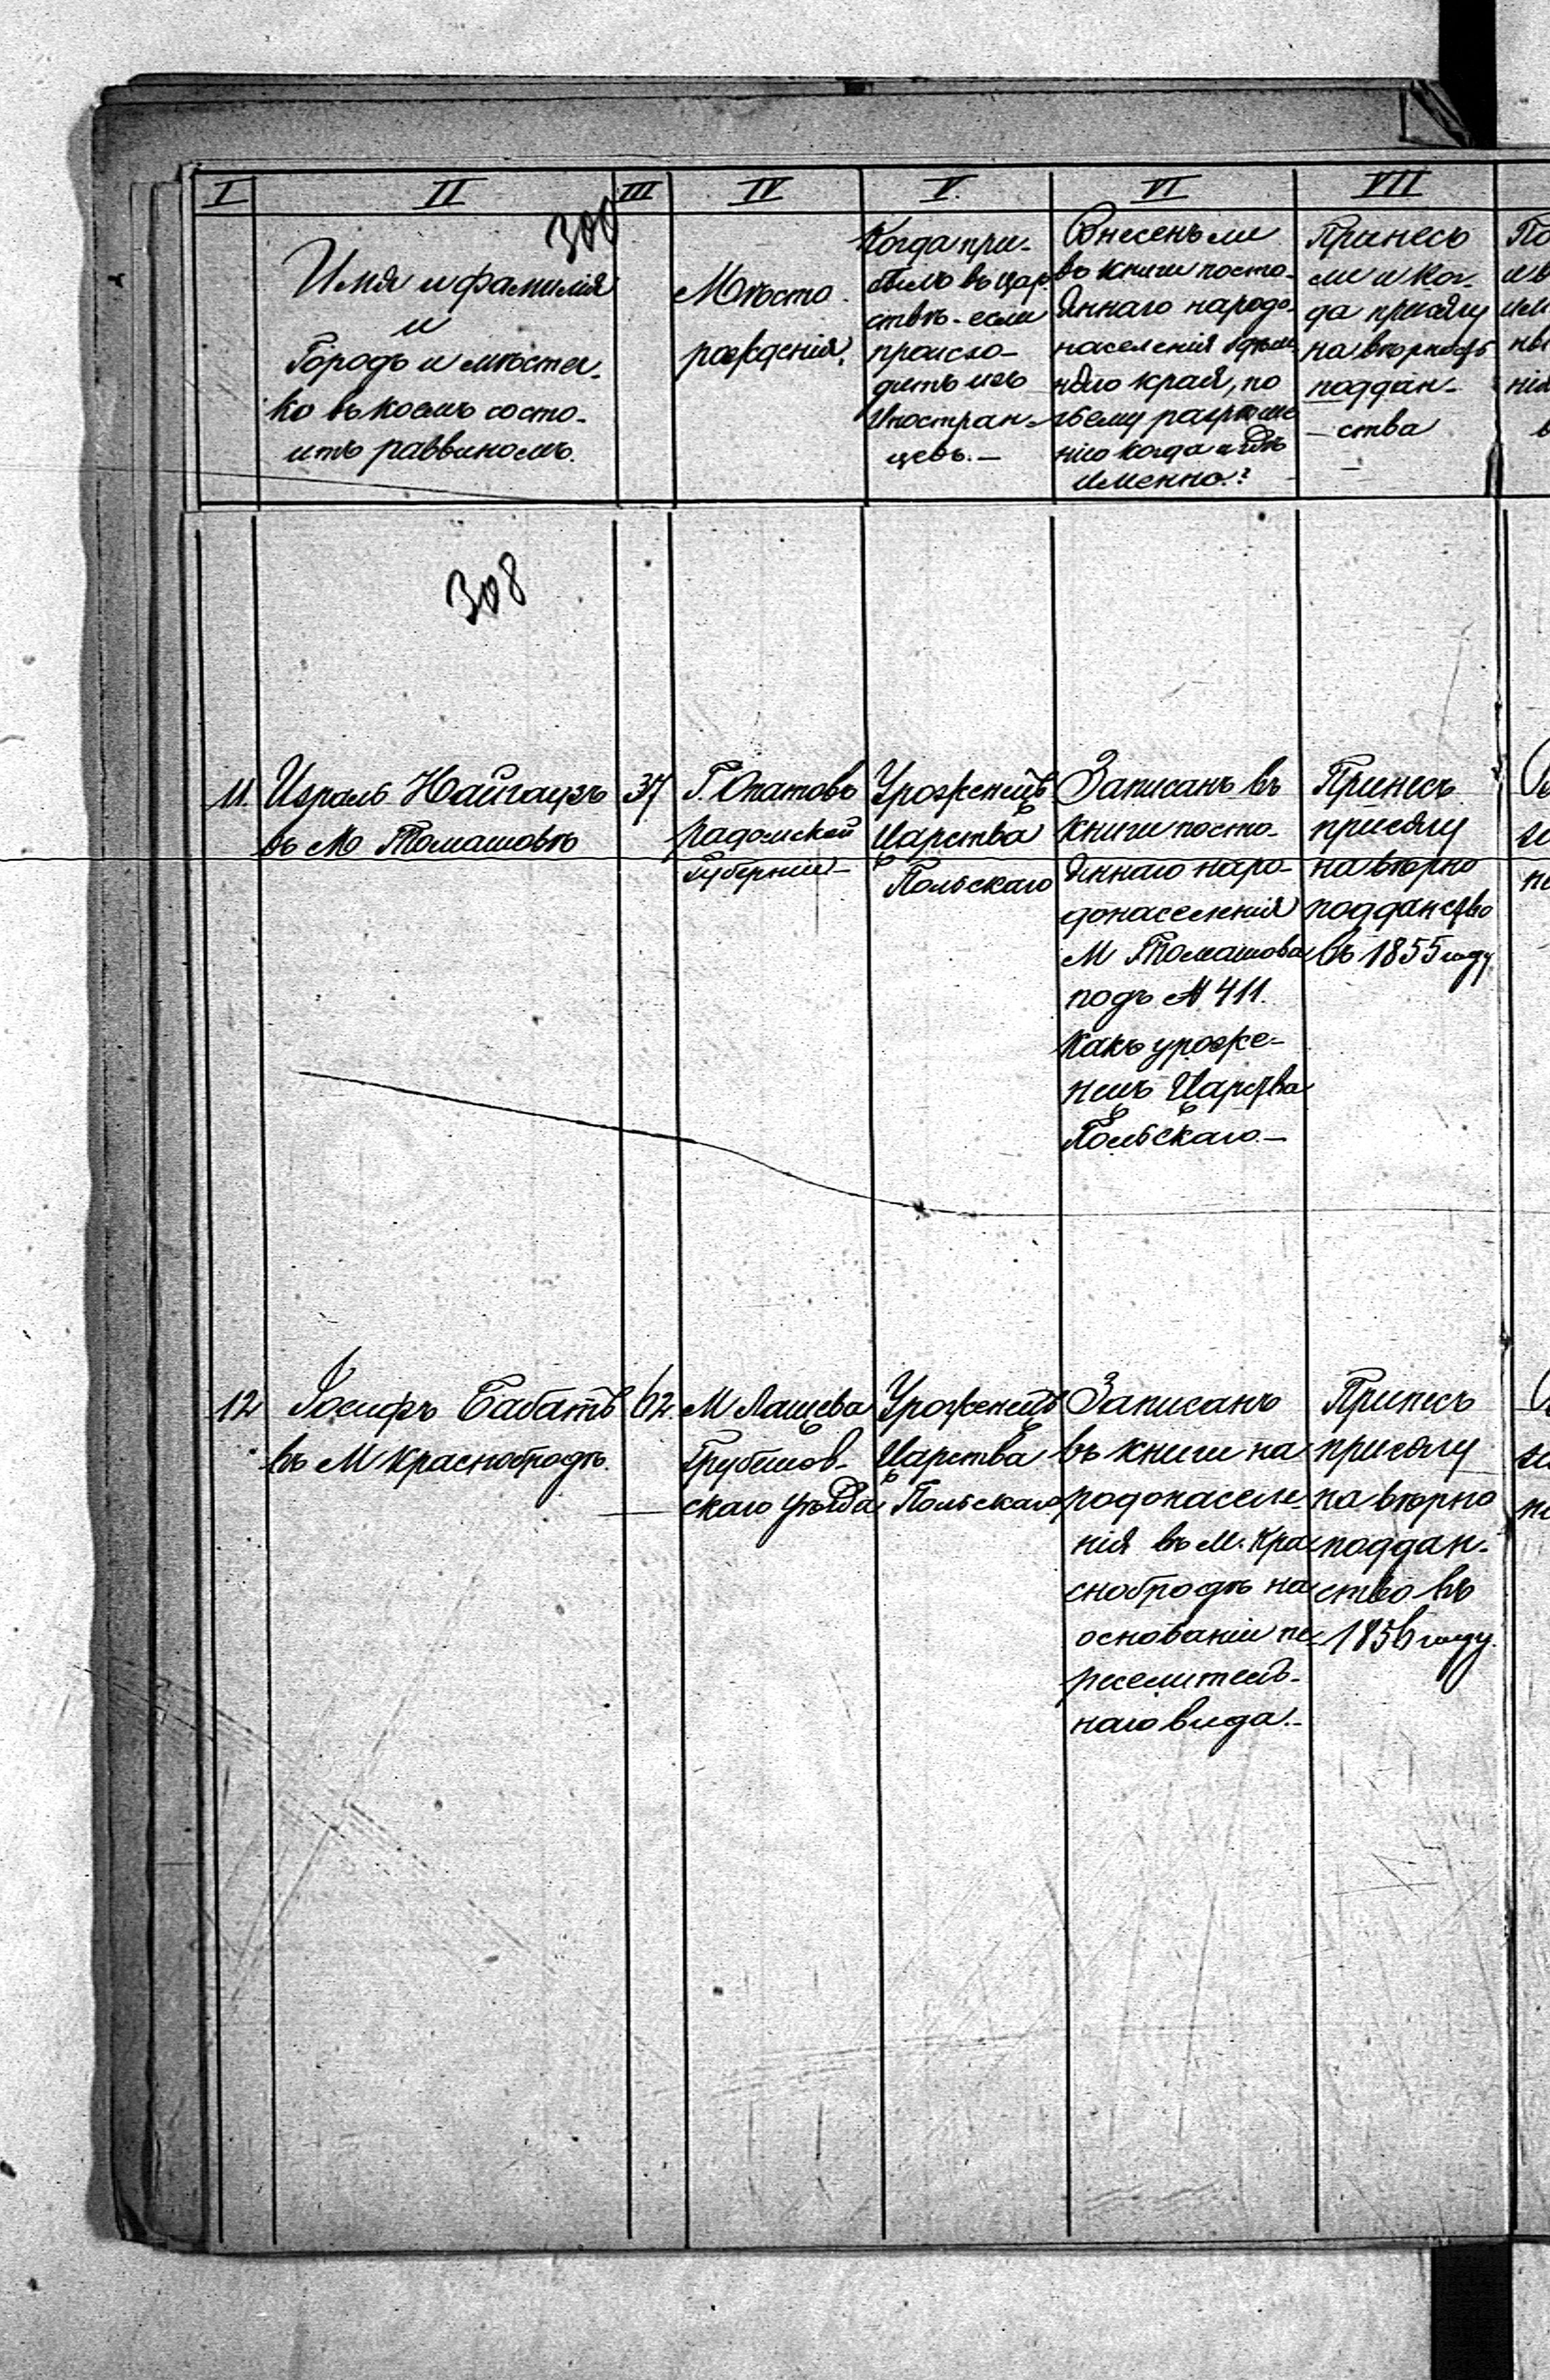 I II III IV V. VI VII
300
Имя и фамилія
и
Городъ и мѣстеч-
ко въ коемъ состо-
итъ раввиномъ.
Мѣсто
рожденія.
Когда при-
былъ въ Цар-
ствѣ - если
происхо-
дитъ изъ
Иностран-
цевъ. —
Внесенъ ли
въ книги посто-
яннаго народо-
населенія здѣш-
няго края, по
чьему разрѣше
нію когда и гдѣ
именно?
Принесъ
ли и ког-
да присягу
на вѣрноср
поддан-
ства
308
11.
Израль Найгаузъ
въ М Томашовѣ
37
Г. Опатовъ
Радомской
Губерніи —
Уроженецъ
Царства
Польскаго
Записанъ въ
книги посто-
яннаго наро-
донаселенія
М Томашова
подъ № 411.
какъ уроже-
нецъ Царства
Польскаго. —
Принесъ
присягу
на вѣрно
подданство
въ 1855 году
12
Іосифъ Бабатъ
въ М Краснобродѣ.
62.
М Лащева
Грубешов-
скаго уѣзда
Уроженецъ
Царства
Польскаго
Записанъ
въ книги на
родонаселе-
нія въ М. Кра-
снобродѣ на
основаніи пе-
реселитель-
наго вида. —
Принесъ
присягу
на вѣрно
поддан-
ство въ
1856 году.